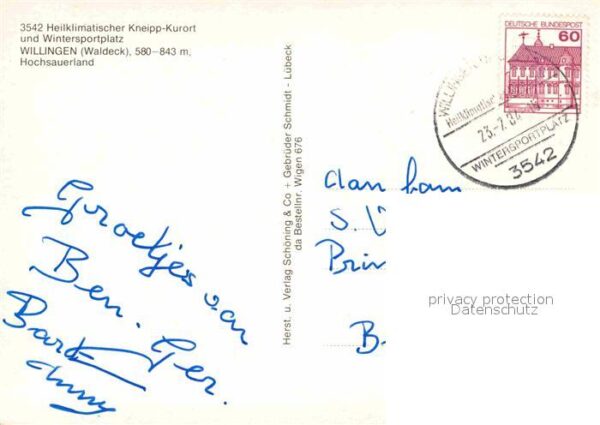 3542 Heilklimatischer Kneipp-Kurort
und Wintersportplatz
WILLINGEN (Waldeck), 580–843 m,
Hochsauerland
Groetjes van
Ben. Ger.
Bart
Anny
Herst. u. Verlag Schöning & Co + Gebrüder Schmidt - Lübeck
da Bestellnr. Wigen 676
DEUTSCHE BUNDESPOST
60
WILLINGEN
Heilklimatischer
23.-7.82
WINTERSPORTPLATZ
3542
S.
B.
privacy protection
Datenschutz